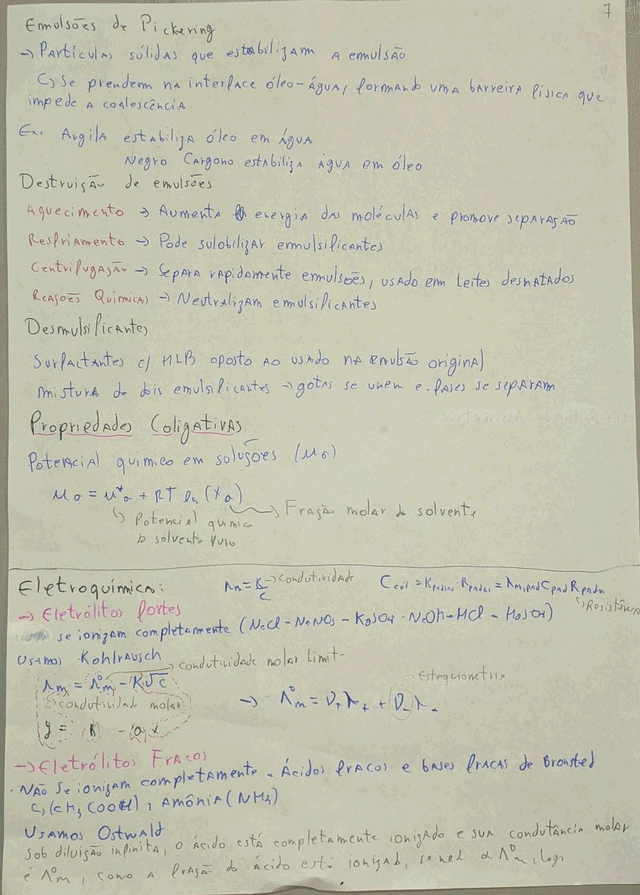 7
Emulsões de Pickering
→ Partículas sólidas que estabilizam a emulsão
↳ Se prendem na interface óleo-água, formando uma barreira física que
impede a coalescência
Ex. Argila estabiliza óleo em água
Negro Cargono estabiliza água em óleo
Destruição de emulsões
Aquecimento → Aumenta energia das moléculas e promove separação
Resfriamento → Pode sulobilizar emulsificantes
Centrifugação → Separa rapidamente emulsões, usado em leites desnatados
Reações Químicas → Neutralizam emulsificantes
Desmulsificantes
Surfactantes c/ HLB oposto ao usado na emulsão original
mistura de dois emulsificantes → gotas se unem e fases se separam
Propriedades Coligativas
Potencial químico em soluções (μσ)
μσ = μ*σ + RT ln (xσ) → Fração molar do solvente
↳ Potencial químico
do solvente puro
Eletroquímica: Λm = K/C → condutividade Ccell = Kpadrao · Rpadrao = Λm,pad Cpad Rpadn
↳ Resistência
→ Eletrólitos fortes
se ionizam completamente (NaCl - NaNO3 - K2SO4 - NaOH - HCl - H2SO4)
Usamos Kohlrausch → condutividade molar limit-
Λm = Λ°m - K√c → Λ°m = ν+ λ+ + ν- λ- Estequiometria
↳ condutividade molar
y = B - a x
→ Eletrólitos Fracos
· Não se ionizam completamente. Ácidos fracos e bases fracas de Bronsted
↳ (CH3COOH), Amônia (NH3)
Usamos Ostwald
sob diluição infinita, o ácido está completamente ionizado e sua condutância molar
é Λ°m, como a fração do ácido está ionizada, α Λ°m, logo